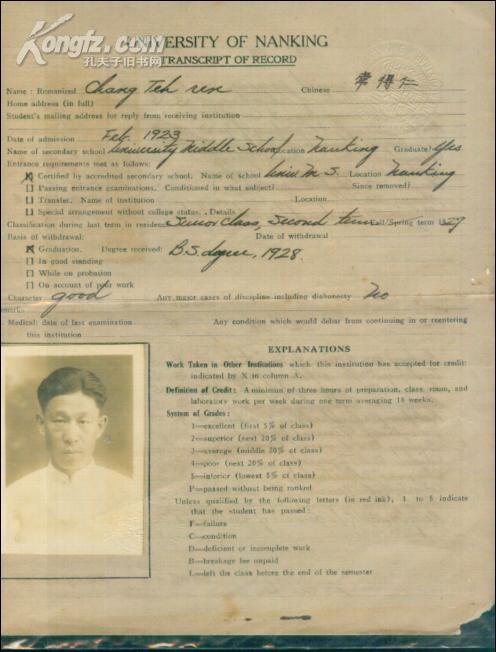 Kongfz.com
孔夫子旧书网
UNIVERSITY OF NANKING
TRANSCRIPT OF RECORD
Name: Romanized Chang Teh ren Chinese 常得仁
Home address (in full)
Student's mailing address for reply from receiving institution
Date of admission Feb. 1923
Name of secondary school University Middle School Location Nanking Graduate? Yes
Entrance requirements met as follows:
[X] Certified by accredited secondary school. Name of school Univ. M. S. Location Nanking
[ ] Passing entrance examinations. Conditioned in what subject? Since removed?
[ ] Transfer. Name of institution Location
[ ] Special arrangement without college status. Details
Classification during last term in residence Senior Class, Second term Fall/Spring term 1927
Basis of withdrawal: Date of withdrawal
[X] Graduation. Degree received: B.S. degree, 1928.
[ ] In good standing
[ ] While on probation
[ ] On account of your work
Character good Any major cases of discipline including dishonesty No
Medical: date of last examination Any condition which would debar from continuing in or reentering
this institution
EXPLANATIONS
Work Taken in Other Institutions which this institution has accepted for credit:
indicated by X in column A.
Definition of Credit: A minimum of three hours of preparation, class room, and
laboratory work per week during one term averaging 18 weeks.
System of Grades:
1—excellent (first 5% of class)
2—superior (next 20% of class)
3—average (middle 50% of class)
4—poor (next 20% of class)
5—inferior (lowest 5% of class)
P—passed without being ranked
Unless qualified by the following letters (in red ink), 1 to 5 indicate
that the student has passed:
F—failure
C—condition
D—deficient or incomplete work
B—breakage fee unpaid
L—left the class before the end of the semester